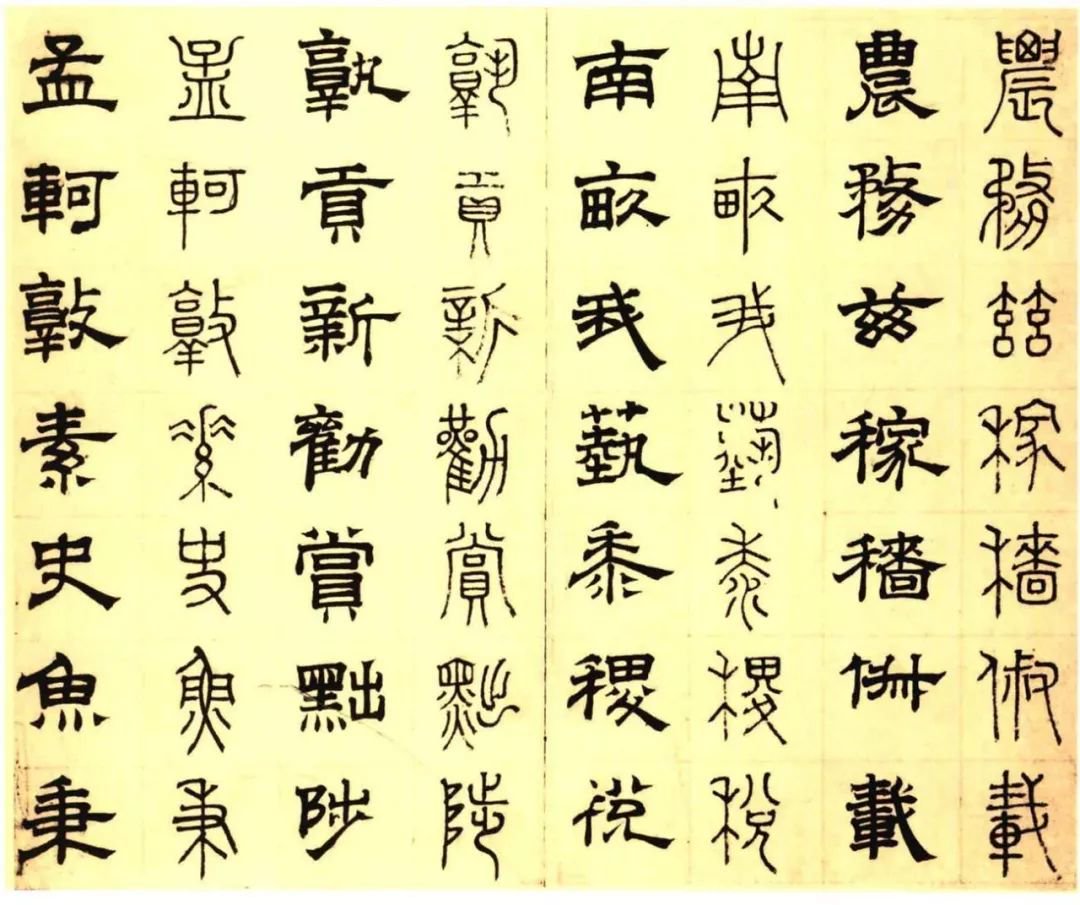 農務茲稼穡俶載
農務茲稼穡俶載
南畝我藝黍稷稅
南畝我藝黍稷稅
孰貢新勸賞黜陟
孰貢新勸賞黜陟
孟軻敦素史魚秉
孟軻敦素史魚秉